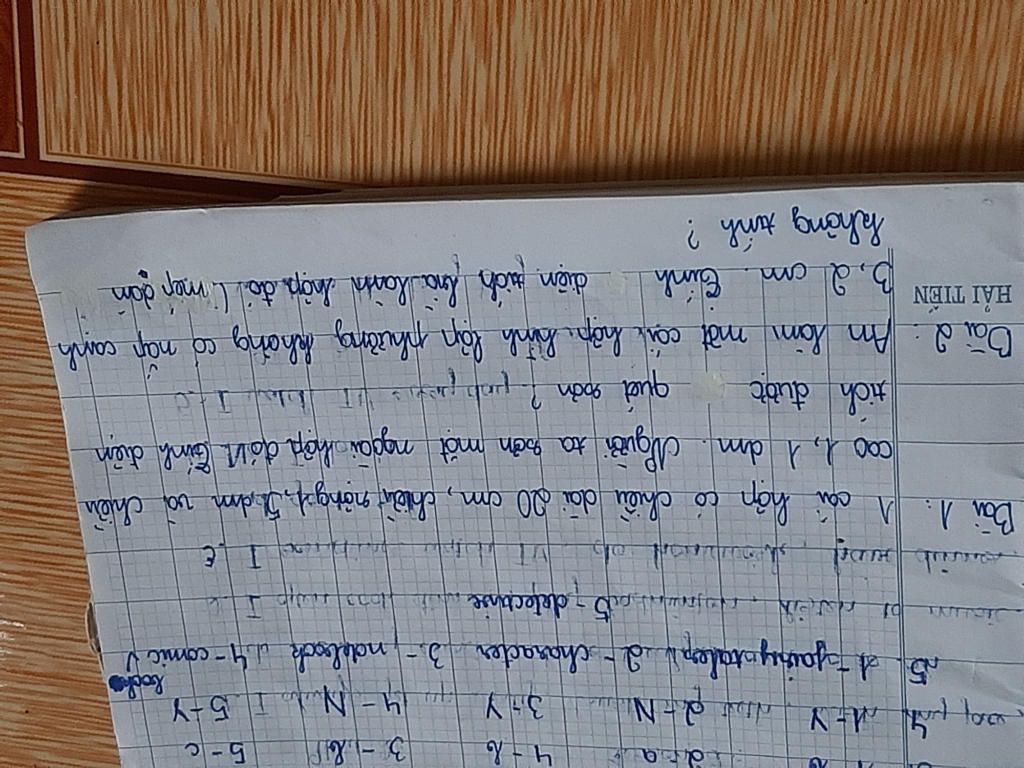 2 - a 4 - b 3 - b 5 - c
4 1 - Y 2 - N 3 - Y 4 - N 5 - Y
5 1 - fairy tale 2 - character 3 - notebook 4 - comic book
5 - detective
Bài 1: 1 cái hộp có chiều dài 20 cm, chiều rộng 1,5 dm và chiều
cao 1,1 dm. Người ta sơn mặt ngoài hộp đó. Tính diện
tích được quét sơn?
Bài 2: An làm một cái hộp hình lập phương không có nắp cạnh
3,2 cm. Tính diện tích bìa làm hộp đó (mép dán
không tính?
HẢI TIẾN